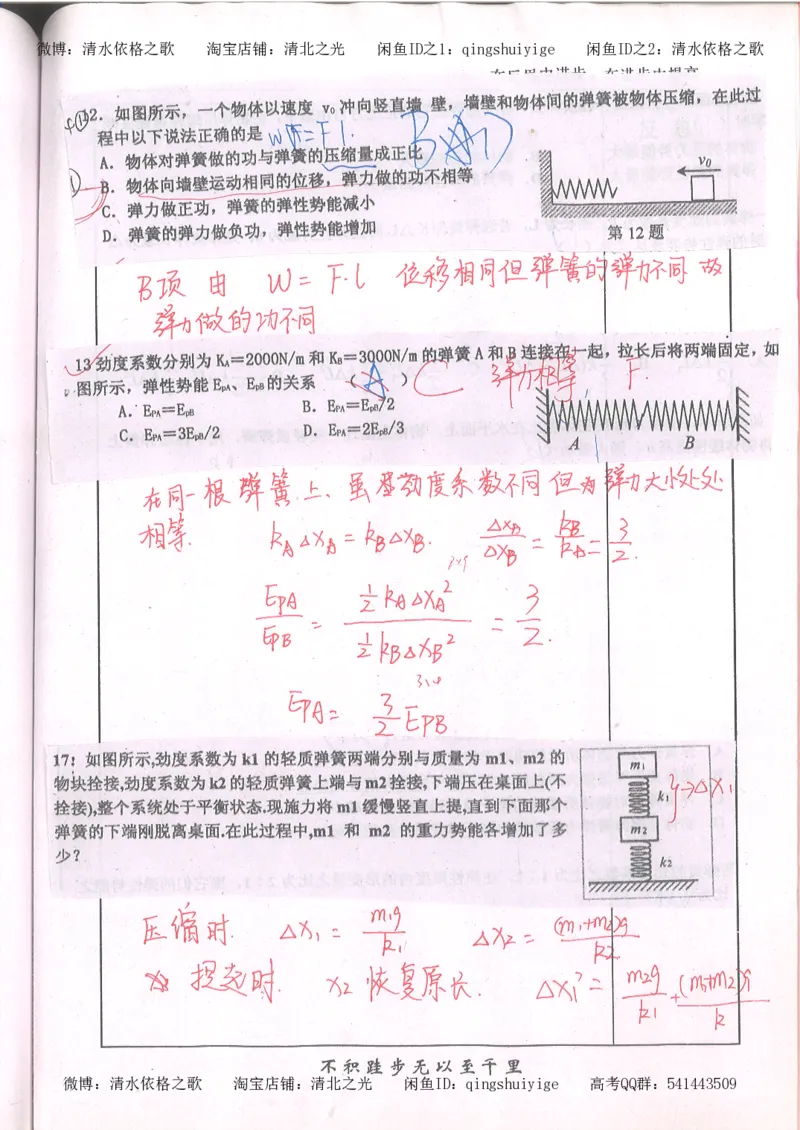 微博：清水依格之歌 淘宝店铺：清北之光 闲鱼ID之1：qingshuiyige 闲鱼ID之2：清水依格之歌
12．如图所示，一个物体以速度 v₀冲向竖直墙 壁，墙壁和物体间的弹簧被物体压缩，在此过
程中以下说法正确的是 W=F·l. B
A．物体对弹簧做的功与弹簧的压缩量成正比
B．物体向墙壁运动相同的位移，弹力做的功不相等
C．弹力做正功，弹簧的弹性势能减小
D．弹簧的弹力做负功，弹簧的弹性势能增加
v₀
第 12 题
B项 由 W= F·l 位移相同但弹簧的弹力不同 故
弹力做的功不同
13 劲度系数分别为 KA＝2000N/m 和 KB＝3000N/m 的弹簧 A 和 B 连接在一起，拉长后将两端固定，如
图所示，弹性势能 EpA、EpB的关系 （ A ） C 弹力相等 F.
A．EPA=EpB B．EPA=EpB/2
C．EPA=3EpB/2 D．EPA=2EpB/3
A B
在同一根弹簧上、虽然劲度系数不同 但为 弹力大小处处
相等. kAΔxA = kBΔxB. ΔxA/ΔxB = kB/kA = 3/2.
EPA/EPB = ½kAΔxA²/½kBΔxB² = 3/2.
EPA= 3/2 EPB
17：如图所示,劲度系数为 k1 的轻质弹簧两端分别与质量为 m1、m2 的
物块拴接,劲度系数为 k2 的轻质弹簧上端与 m2 拴接,下端压在桌面上(不
拴接),整个系统处于平衡状态.现施力将 m1 缓慢竖直上提,直到下面那个
弹簧的下端刚脱离桌面.在此过程中,m1 和 m2 的重力势能各增加了多
少？
m₁
k₁ →Δx₁
m₂
k₂
压缩时. Δx₁ = m₁g/k₁ Δx₂ = (m₁+m₂)g/k₂
提起时. x₂ 恢复原长. Δx₁² = m₂g/k₁ + (m₁+m₂)g/k
不积跬步无以至千里
微博：清水依格之歌 淘宝店铺：清北之光 闲鱼ID：qingshuiyige 高考QQ群：541443509